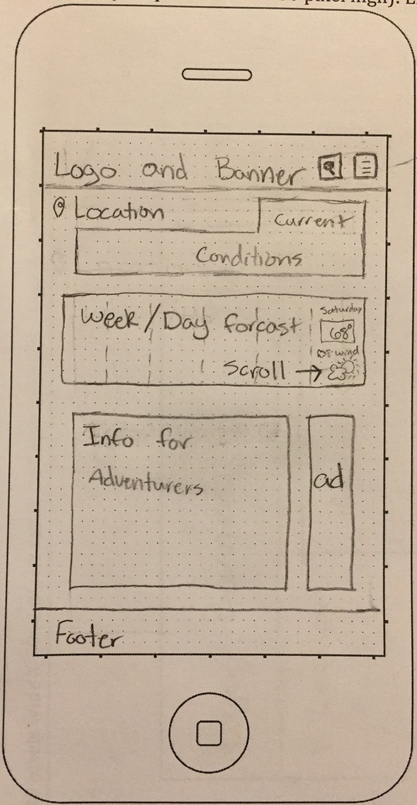 Logo and Banner
Location
Current
Conditions
Week/Day forcast
Saturday
68°
Scroll →
Info for
Adventurers
ad
Footer